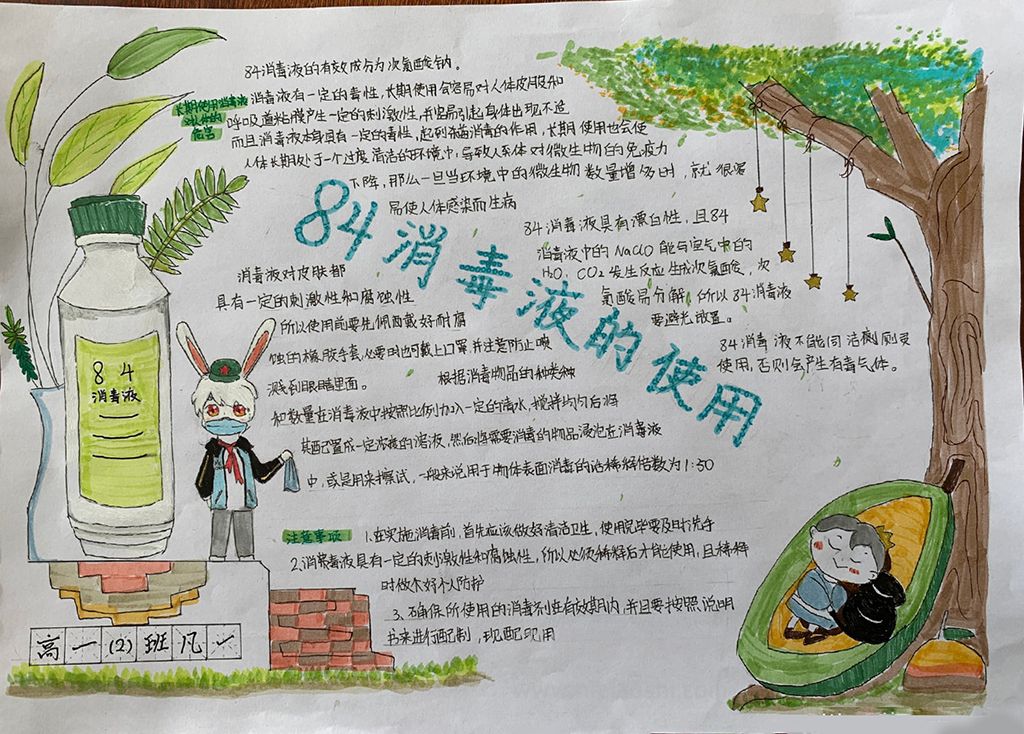 84消毒液的有效成分为次氯酸钠。
长期使用消毒液
对人体的
危害
消毒液有一定的毒性，长期使用会容易对人体皮肤和
呼吸道粘膜产生一定的刺激性，并容易引起身体出现不适
而且消毒液本身具有一定的毒性，起到杀菌消毒的作用，长期使用也会使
人体长期处于一个过度清洁的环境中，导致人系体对微生物的免疫力
下降，那么一旦当环境中的微生物数量增多时，就很容
易使人体感染而生病
84消毒液的使用
84消毒液具有漂白性，且84
消毒液中的NaClO能与空气中的
H₂O、CO₂发生反应生成次氯酸，次
氯酸易分解，所以84消毒液
要避光放置。
84消毒液不能同洁厕灵
使用，否则会产生有毒气体。
消毒液对皮肤都
具有一定的刺激性和腐蚀性
所以使用前要先佩戴好耐腐
蚀的橡胶手套，必要时也可戴上口罩，并注意防止喷
溅到眼睛里面。
根据消毒物品的种类种
和数量在消毒液中按照比例加入一定的清水，搅拌均匀后将
其配置成一定浓度的溶液，然后将需要消毒的物品浸泡在消毒液
中，或是用来擦试，一般来说用于物体表面消毒的话稀释倍数为1:50
84
消毒液
注意事项
1.在实施消毒前，首先应该做好清洁卫生，使用完毕要及时洗手
2.消毒液具有一定的刺激性和腐蚀性，所以必须稀释后才能使用，且稀释
时做好个人防护
3、确保所使用的消毒剂在有效期内，并且要按照说明
书来进行配制，现配现用
高一(2)班凡一